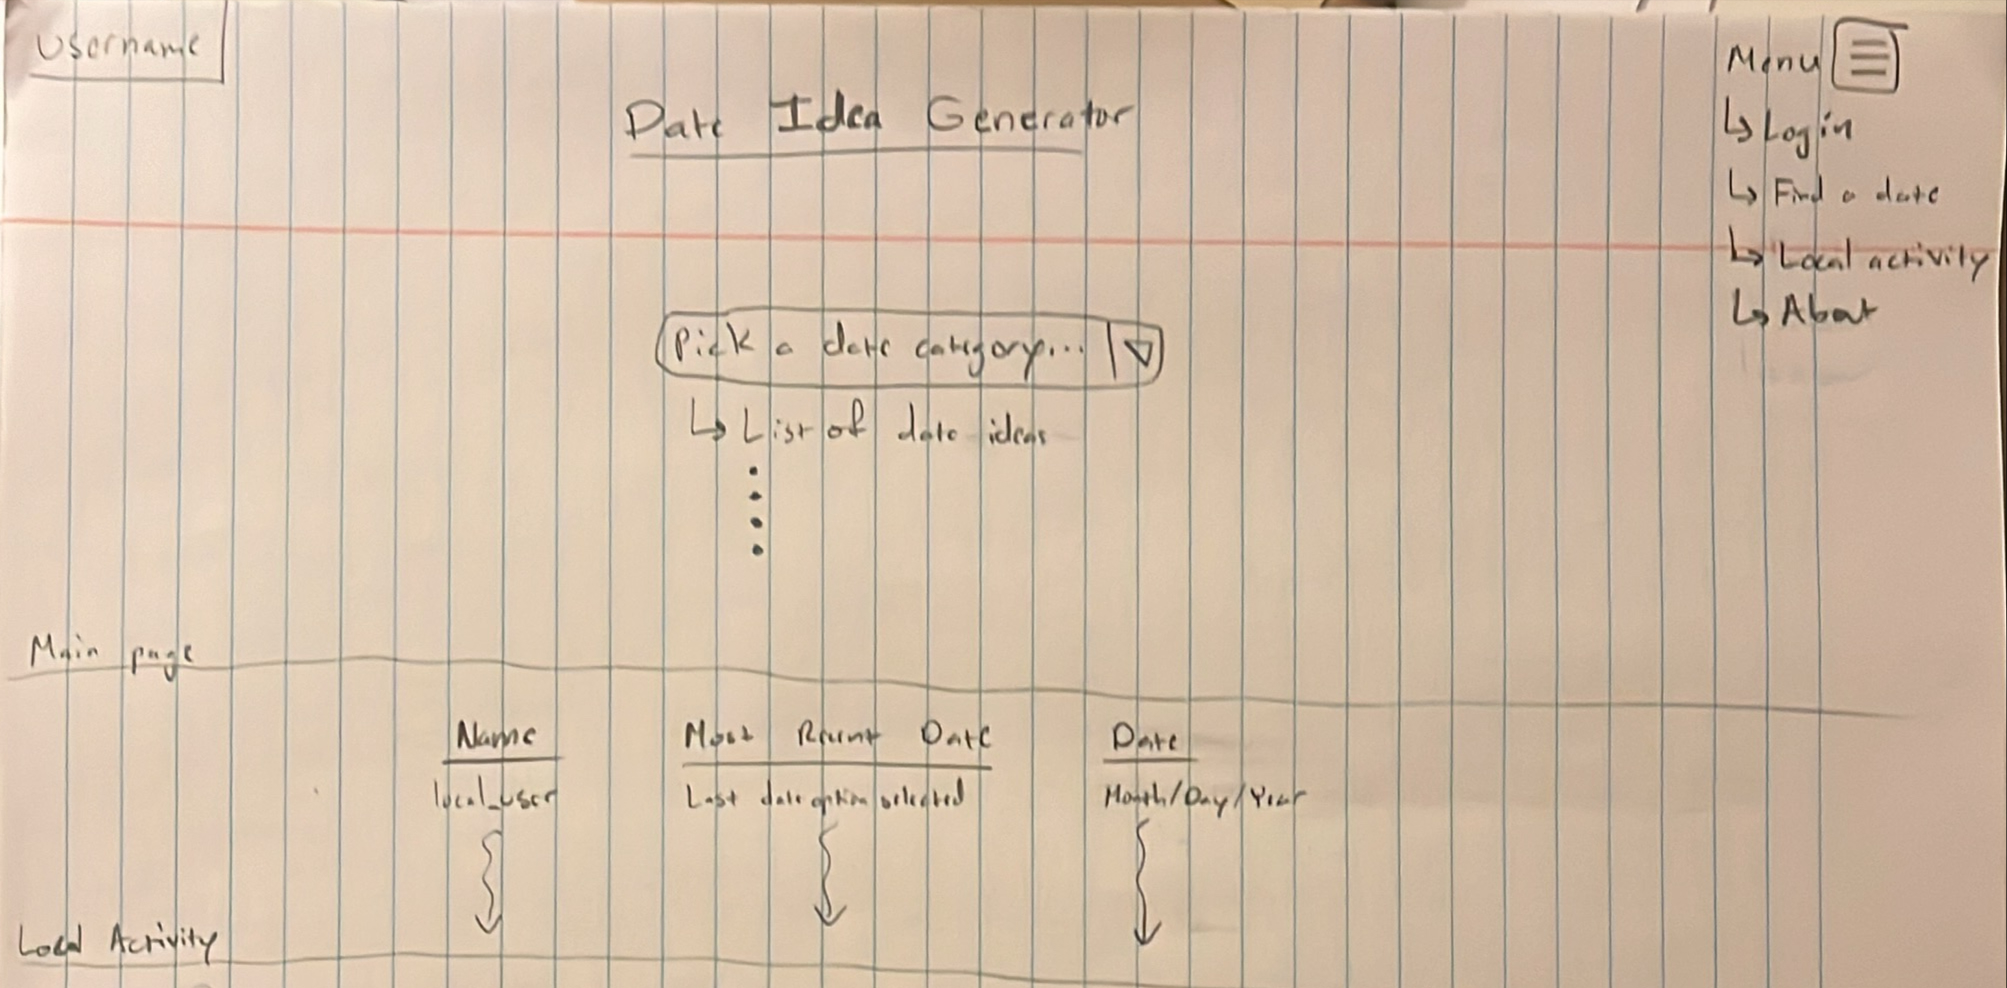 Username
Menu
Date Idea Generator
↳ Login
↳ Find a date
↳ Local activity
↳ About
Pick a date category...
↳ List of date ideas
Main page
Name Most Recent Date Date
local_user Last date option selected Month/Day/Year
Local Activity